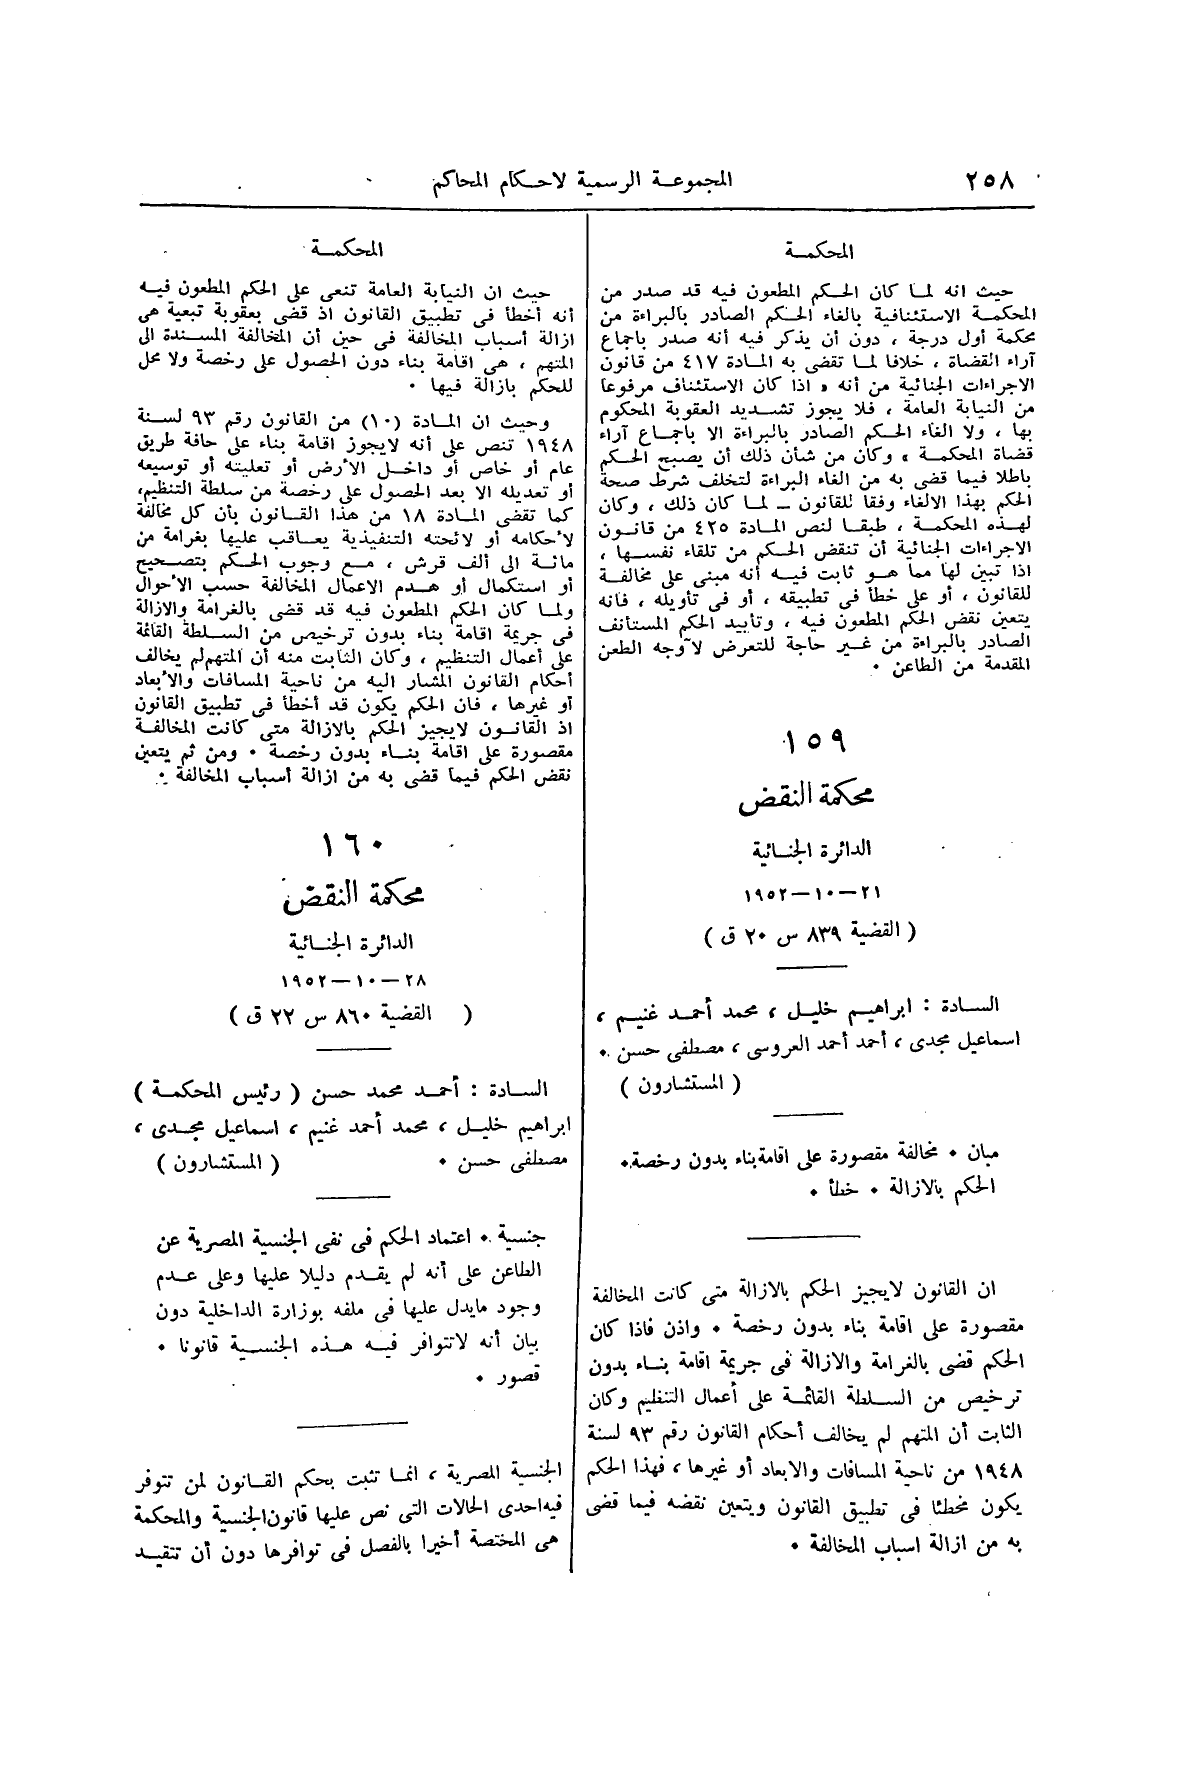 ٢٥٨
المجموعة الرسمية لاحكام المحاكم
المحكمة
حيث انه لما كان الحكم المطعون فيه قد صدر من
المحكمة الاستئنافية بالغاء الحكم الصادر بالبراءة من
محكمة أول درجة ، دون أن يذكر فيه أنه صدر باجماع
آراء القضاة ، خلافا لما تقضى به المادة ٤١٧ من قانون
الاجراءات الجنائية من أنه « اذا كان الاستئناف مرفوعا
من النيابة العامة ، فلا يجوز تشديد العقوبة المحكوم
بها ، ولا الغاء الحكم الصادر بالبراءة الا باجماع آراء
قضاة المحكمة » وكان من شأن ذلك أن يصبح الحكم
باطلا فيما قضى به من الغاء البراءة لتخلف شرط صحة
الحكم بهذا الالغاء وفقا للقانون ـ لما كان ذلك ، وكان
لهذه المحكمة ، طبقا لنص المادة ٤٢٥ من قانون
الاجراءات الجنائية أن تنقض الحكم من تلقاء نفسها ،
اذا تبين لها مما هو ثابت فيه أنه مبنى على مخالفة
للقانون ، أو على خطأ فى تطبيقه ، أو فى تأويله ، فانه
يتعين نقض الحكم المطعون فيه ، وتأييد الحكم المستأنف
الصادر بالبراءة من غير حاجة للتعرض لأوجه الطعن
المقدمة من الطاعن ٠
١٥٩
محكمة النقض
الدائرة الجنائية
٢١–١٠–١٩٥٢
( القضية ٨٣٩ س ٢٠ ق )
السادة : ابراهيم خليل ، محمد أحمد غنيم ،
اسماعيل مجدى ، أحمد أحمد العروسى ، مصطفى حسن ٠
( المستشارون )
مبان ٠ مخالفة مقصورة على اقامة بناء بدون رخصة ٠
الحكم بالازالة ٠ خطأ ٠
ان القانون لايجيز الحكم بالازالة متى كانت المخالفة
مقصورة على اقامة بناء بدون رخصة ٠ واذن فاذا كان
الحكم قضى بالغرامة والازالة فى جريمة اقامة بناء بدون
ترخيص من السلطة القائمة على أعمال التنظيم وكان
الثابت أن المتهم لم يخالف أحكام القانون رقم ٩٣ لسنة
١٩٤٨ من ناحية المسافات والابعاد أو غيرها ، فهذا الحكم
يكون مخطئا فى تطبيق القانون ويتعين نقضه فيما قضى
به من ازالة اسباب المخالفة ٠
المحكمة
حيث ان النيابة العامة تنعى على الحكم المطعون فيه
أنه أخطأ فى تطبيق القانون اذ قضى بعقوبة تبعية هى
ازالة أسباب المخالفة فى حين أن المخالفة المسندة الى
المتهم ، هى اقامة بناء دون الحصول على رخصة ولا محل
للحكم بازالة فيها ٠
وحيث ان المادة (١٠) من القانون رقم ٩٣ لسنة
١٩٤٨ تنص على أنه لايجوز اقامة بناء على حافة طريق
عام أو خاص أو داخل الأرض أو تعليته أو توسيعه
أو تعديله الا بعد الحصول على رخصة من سلطة التنظيم،
كما تقضى المادة ١٨ من هذا القانون بأن كل مخالفة
لأحكامه أو لائحته التنفيذية يعاقب عليها بغرامة من
مائة الى ألف قرش ، مع وجوب الحكم بتصحيح
أو استكمال أو هدم الاعمال المخالفة حسب الأحوال
ولما كان الحكم المطعون فيه قد قضى بالغرامة والازالة
فى جريمة اقامة بناء بدون ترخيص من السلطة القائمة
على أعمال التنظيم ، وكان الثابت منه أن المتهم لم يخالف
أحكام القانون المشار اليه من ناحية المسافات والأبعاد
أو غيرها ، فان الحكم يكون قد أخطأ فى تطبيق القانون
اذ القانون لايجيز الحكم بالازالة متى كانت المخالفة
مقصورة على اقامة بناء بدون رخصة ٠ ومن ثم يتعين
نقض الحكم فيما قضى به من ازالة أسباب المخالفة ٠
١٦٠
محكمة النقض
الدائرة الجنائية
٢٨–١٠–١٩٥٢
( القضية ٨٦٠ س ٢٢ ق )
السادة : أحمد محمد حسن ( رئيس المحكمة )
ابراهيم خليل ، محمد أحمد غنيم ، اسماعيل مجدى ،
مصطفى حسن ٠ ( المستشارون )
جنسية ٠ اعتماد الحكم فى نفى الجنسية المصرية عن
الطاعن على أنه لم يقدم دليلا عليها وعلى عدم
وجود مايدل عليها فى ملفه بوزارة الداخلية دون
بيان أنه لاتتوافر فيه هذه الجنسية قانونا ٠
قصور ٠
الجنسية المصرية ، انما تثبت بحكم القانون لمن تتوفر
فيه احدى الحالات التى نص عليها قانون الجنسية والمحكمة
هى المختصة أخيرا بالفصل فى توافرها دون أن تتقيد